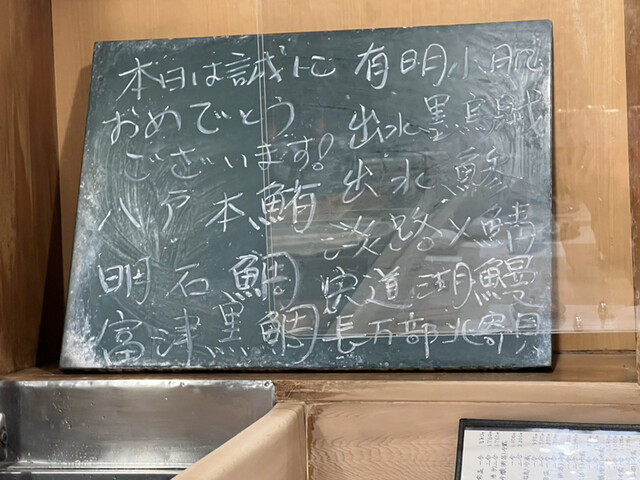 本日は誠に
おめでとう
ございます!
八戸本鮪
明石鯛
富津黒鯛
有明小肌
出水墨烏賊
出水鯵
淡路〆鯖
宍道湖鰻
長万部北寄貝